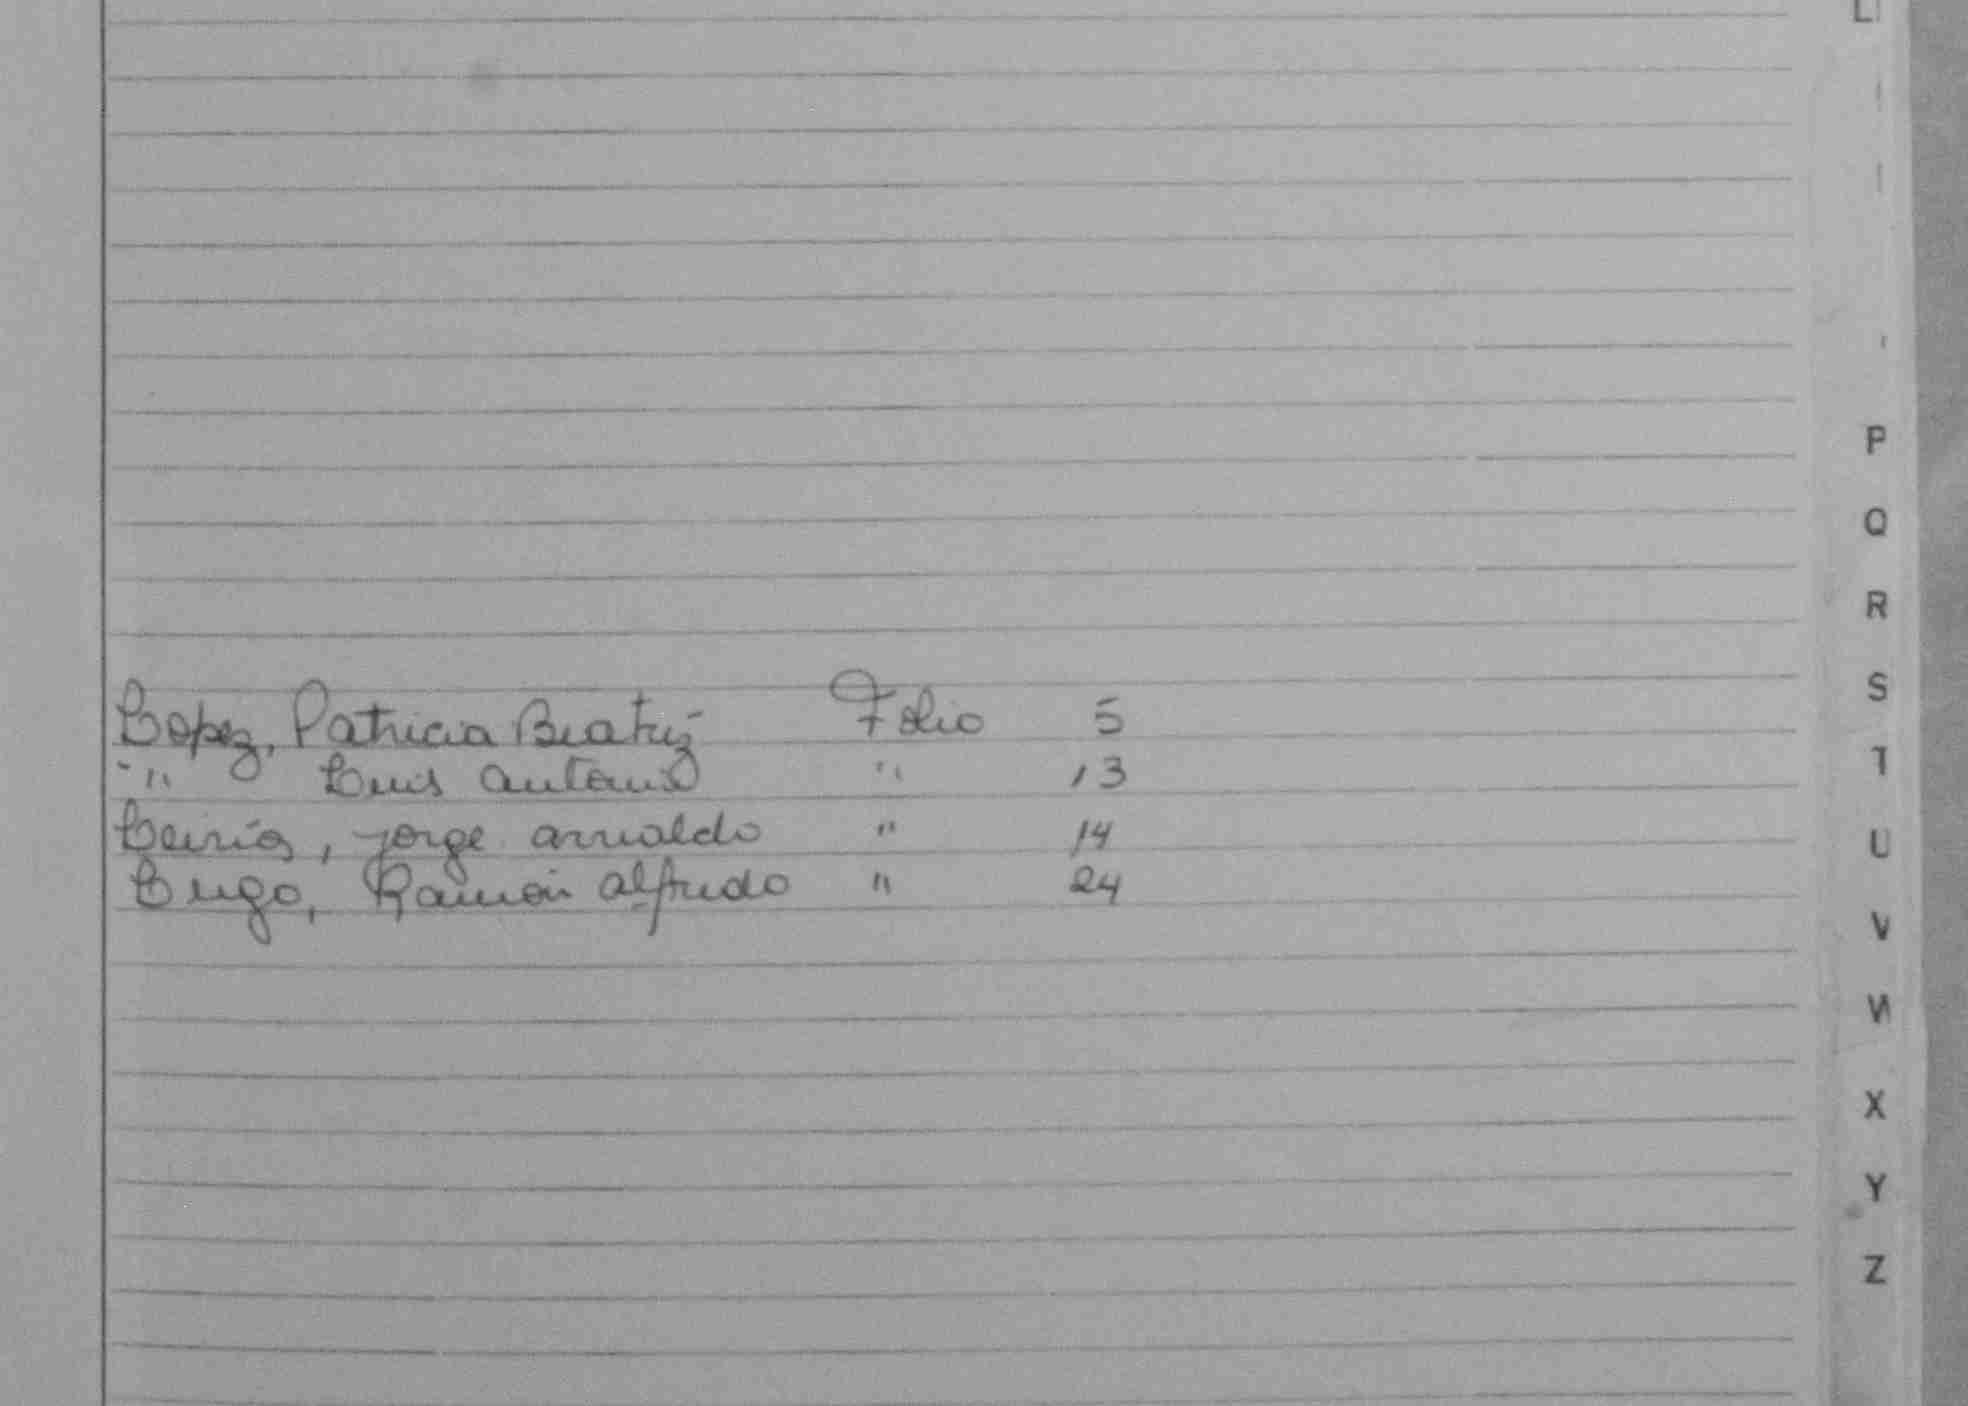 Lopez, Patricia Beatriz Folio 5
" Luis Antonio " 13
Leiria, Jorge Arnaldo " 14
Lugo, Ramón Alfredo " 24
P
Q
R
S
T
U
V
W
X
Y
Z